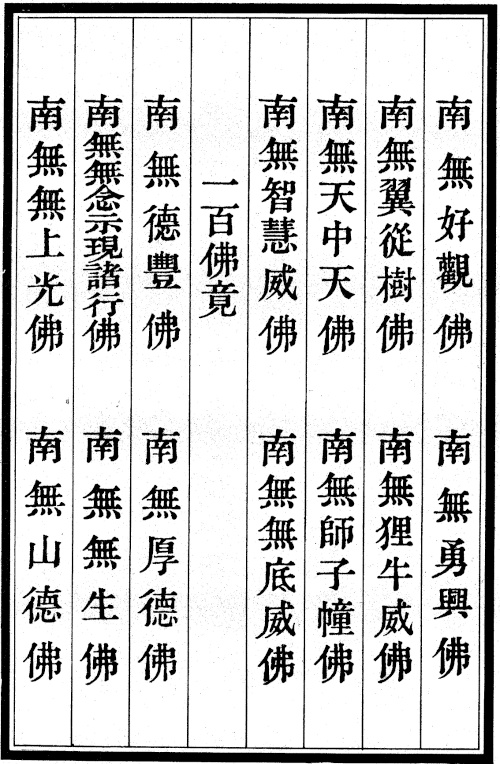 南無好觀佛　南無勇興佛
南無翼從樹佛　南無狸牛威佛
南無天中天佛　南無師子幢佛
南無智慧威佛　南無無底威佛
二百佛竟
南無德豐佛　南無厚德佛
南無無念示現諸行佛　南無無生佛
南無無上光佛　南無山德佛